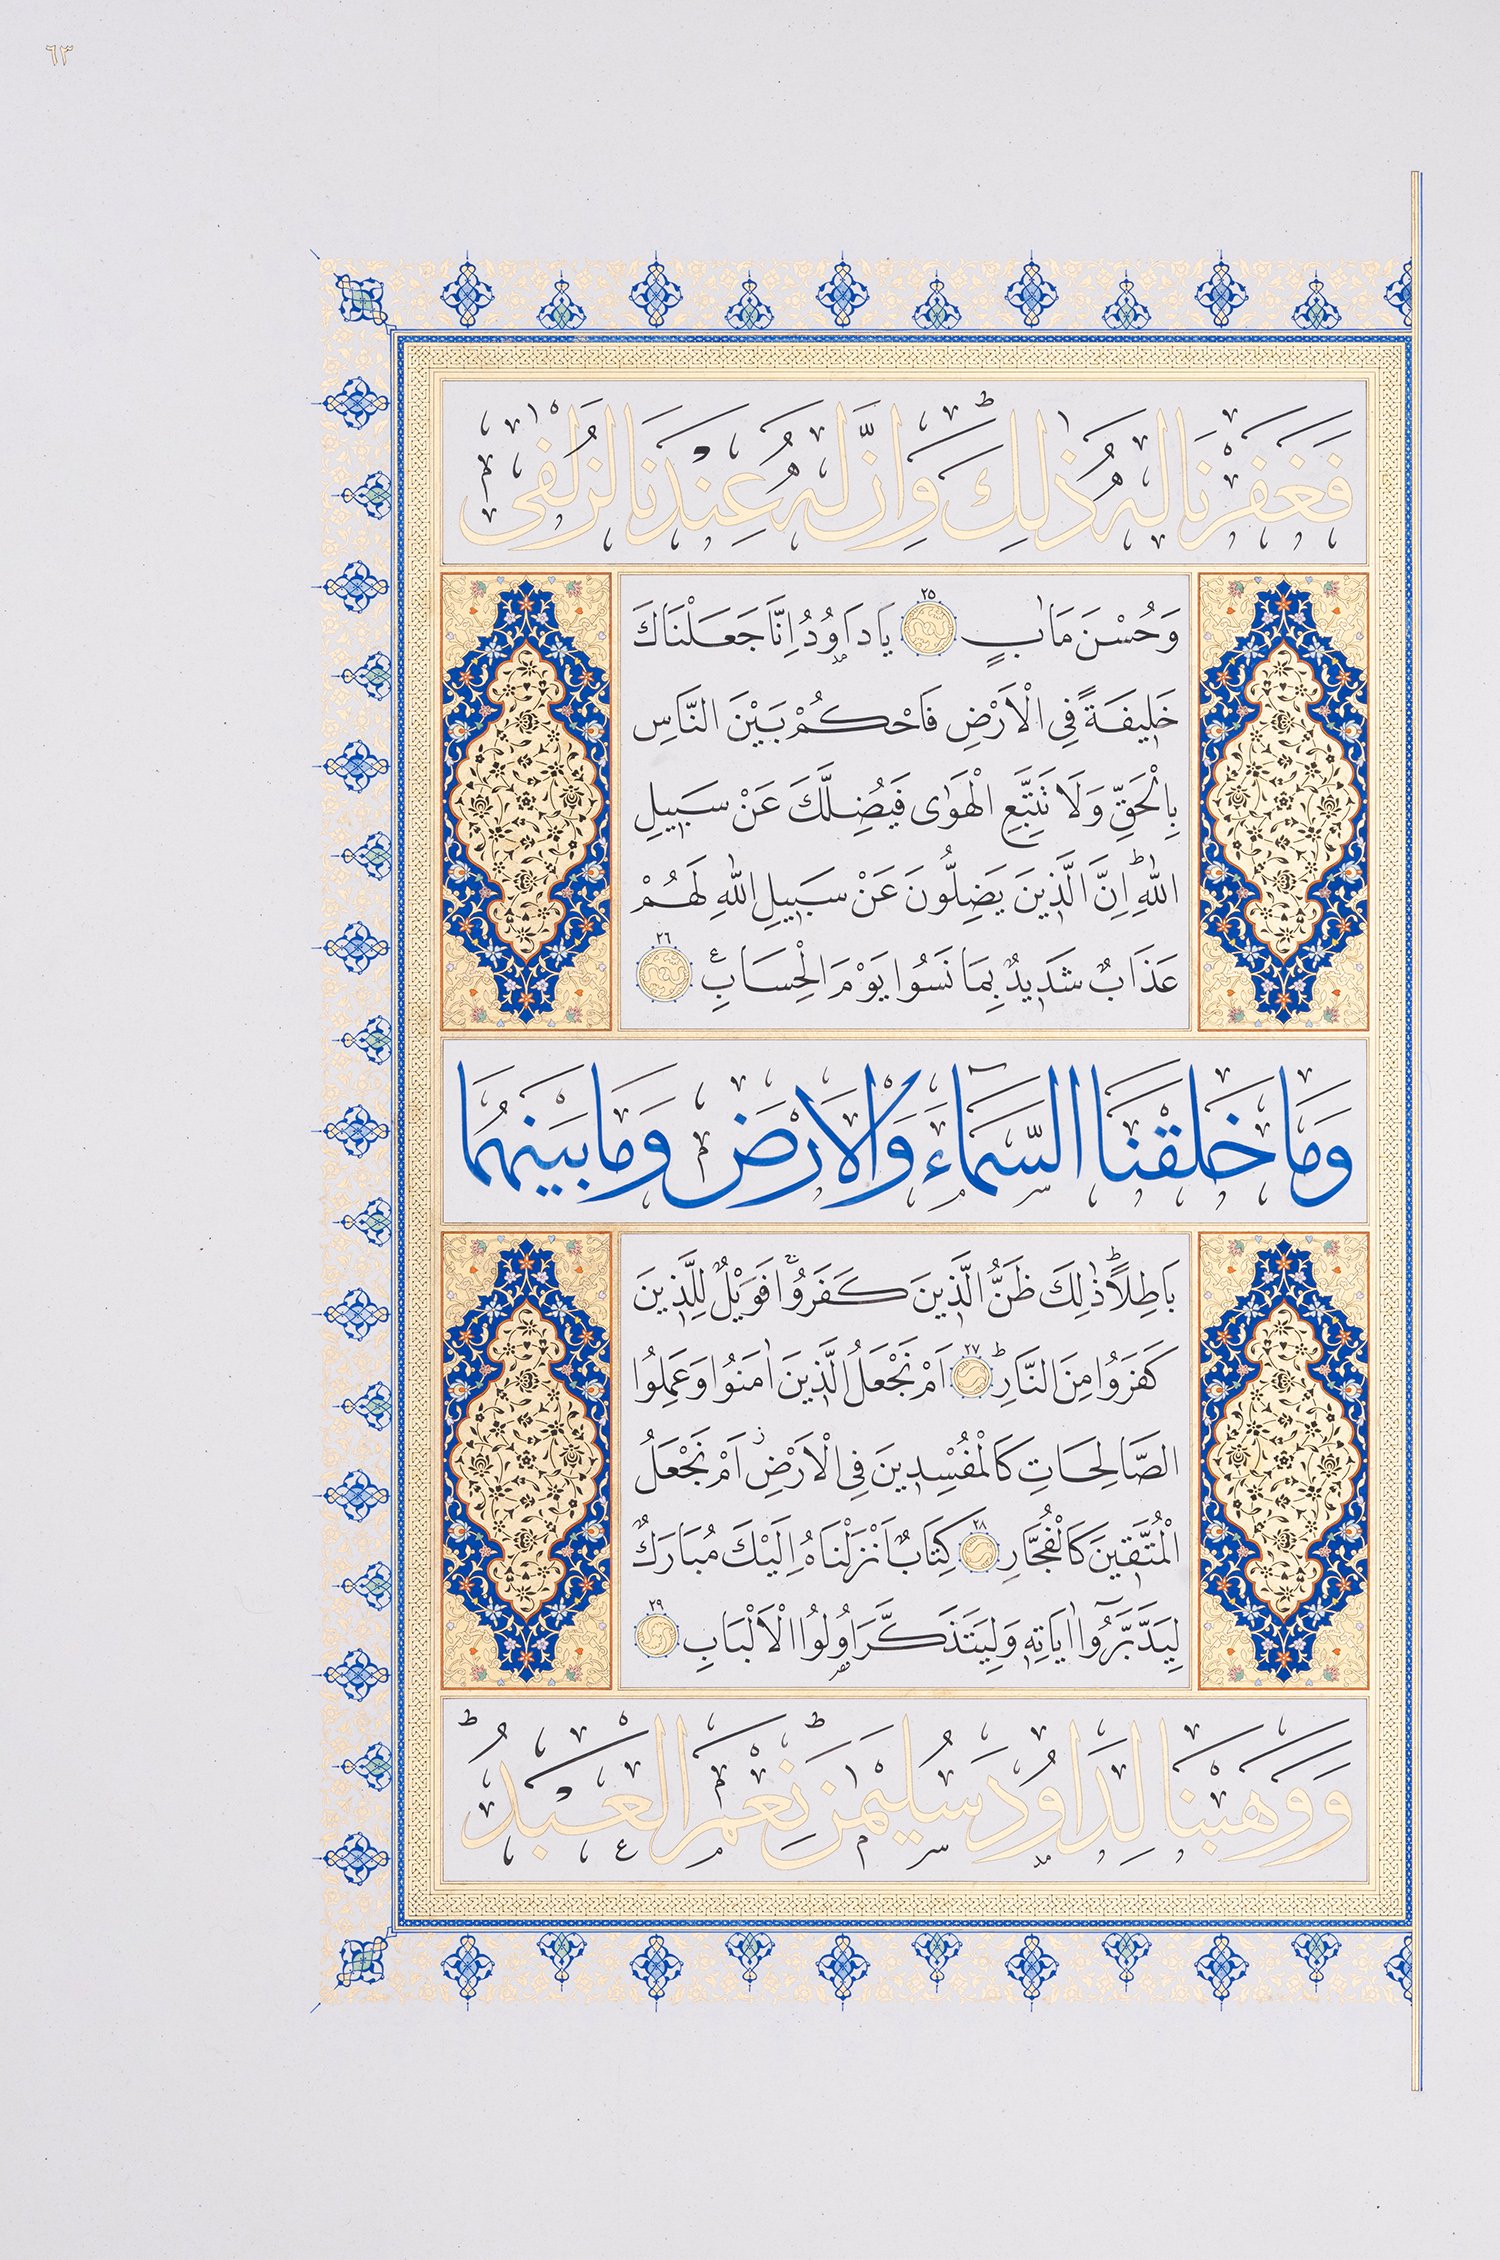 ٦٣
فَغَفَرْنَا لَهُ ذٰلِكَۜ وَاِنَّ لَهُ عِنْدَنَا لَزُلْفٰى
وَحُسْنَ مَاٰبٍ ٢٥ يَا دَاوُدُ اِنَّا جَعَلْنَاكَ
خَلِيفَةً فِى الْاَرْضِ فَاحْكُمْ بَيْنَ النَّاسِ
بِالْحَقِّ وَلَا تَتَّبِعِ الْهَوٰى فَيُضِلَّكَ عَنْ سَبِيلِ
اللّٰهِؕ اِنَّ الَّذِينَ يَضِلُّونَ عَنْ سَبِيلِ اللّٰهِ لَهُمْ
عَذَابٌ شَدِيدٌ بِمَا نَسُوا يَوْمَ الْحِسَابِ ع ٢٦
وَمَا خَلَقْنَا السَّمَاءَ وَالْاَرْضَ وَمَا بَيْنَهُمَا
بَاطِلًاؕ ذٰلِكَ ظَنُّ الَّذِينَ كَفَرُوا فَوَيْلٌ لِلَّذِينَ
كَفَرُوا مِنَ النَّارِؕ ٢٧ اَمْ نَجْعَلُ الَّذِينَ اٰمَنُوا وَعَمِلُوا
الصَّالِحَاتِ كَالْمُفْسِدِينَ فِى الْاَرْضِ ز اَمْ نَجْعَلُ
الْمُتَّقِينَ كَالْفُجَّارِ ٢٨ كِتَابٌ اَنْزَلْنَاهُ اِلَيْكَ مُبَارَكٌ
لِيَدَّبَّرُٓوا اٰيَاتِهِ وَلِيَتَذَكَّرَ اُولُوا الْاَلْبَابِ ٢٩
وَوَهَبْنَا لِدَاوُدَ سُلَيْمٰنَؕ نِعْمَ الْعَبْدُؕ